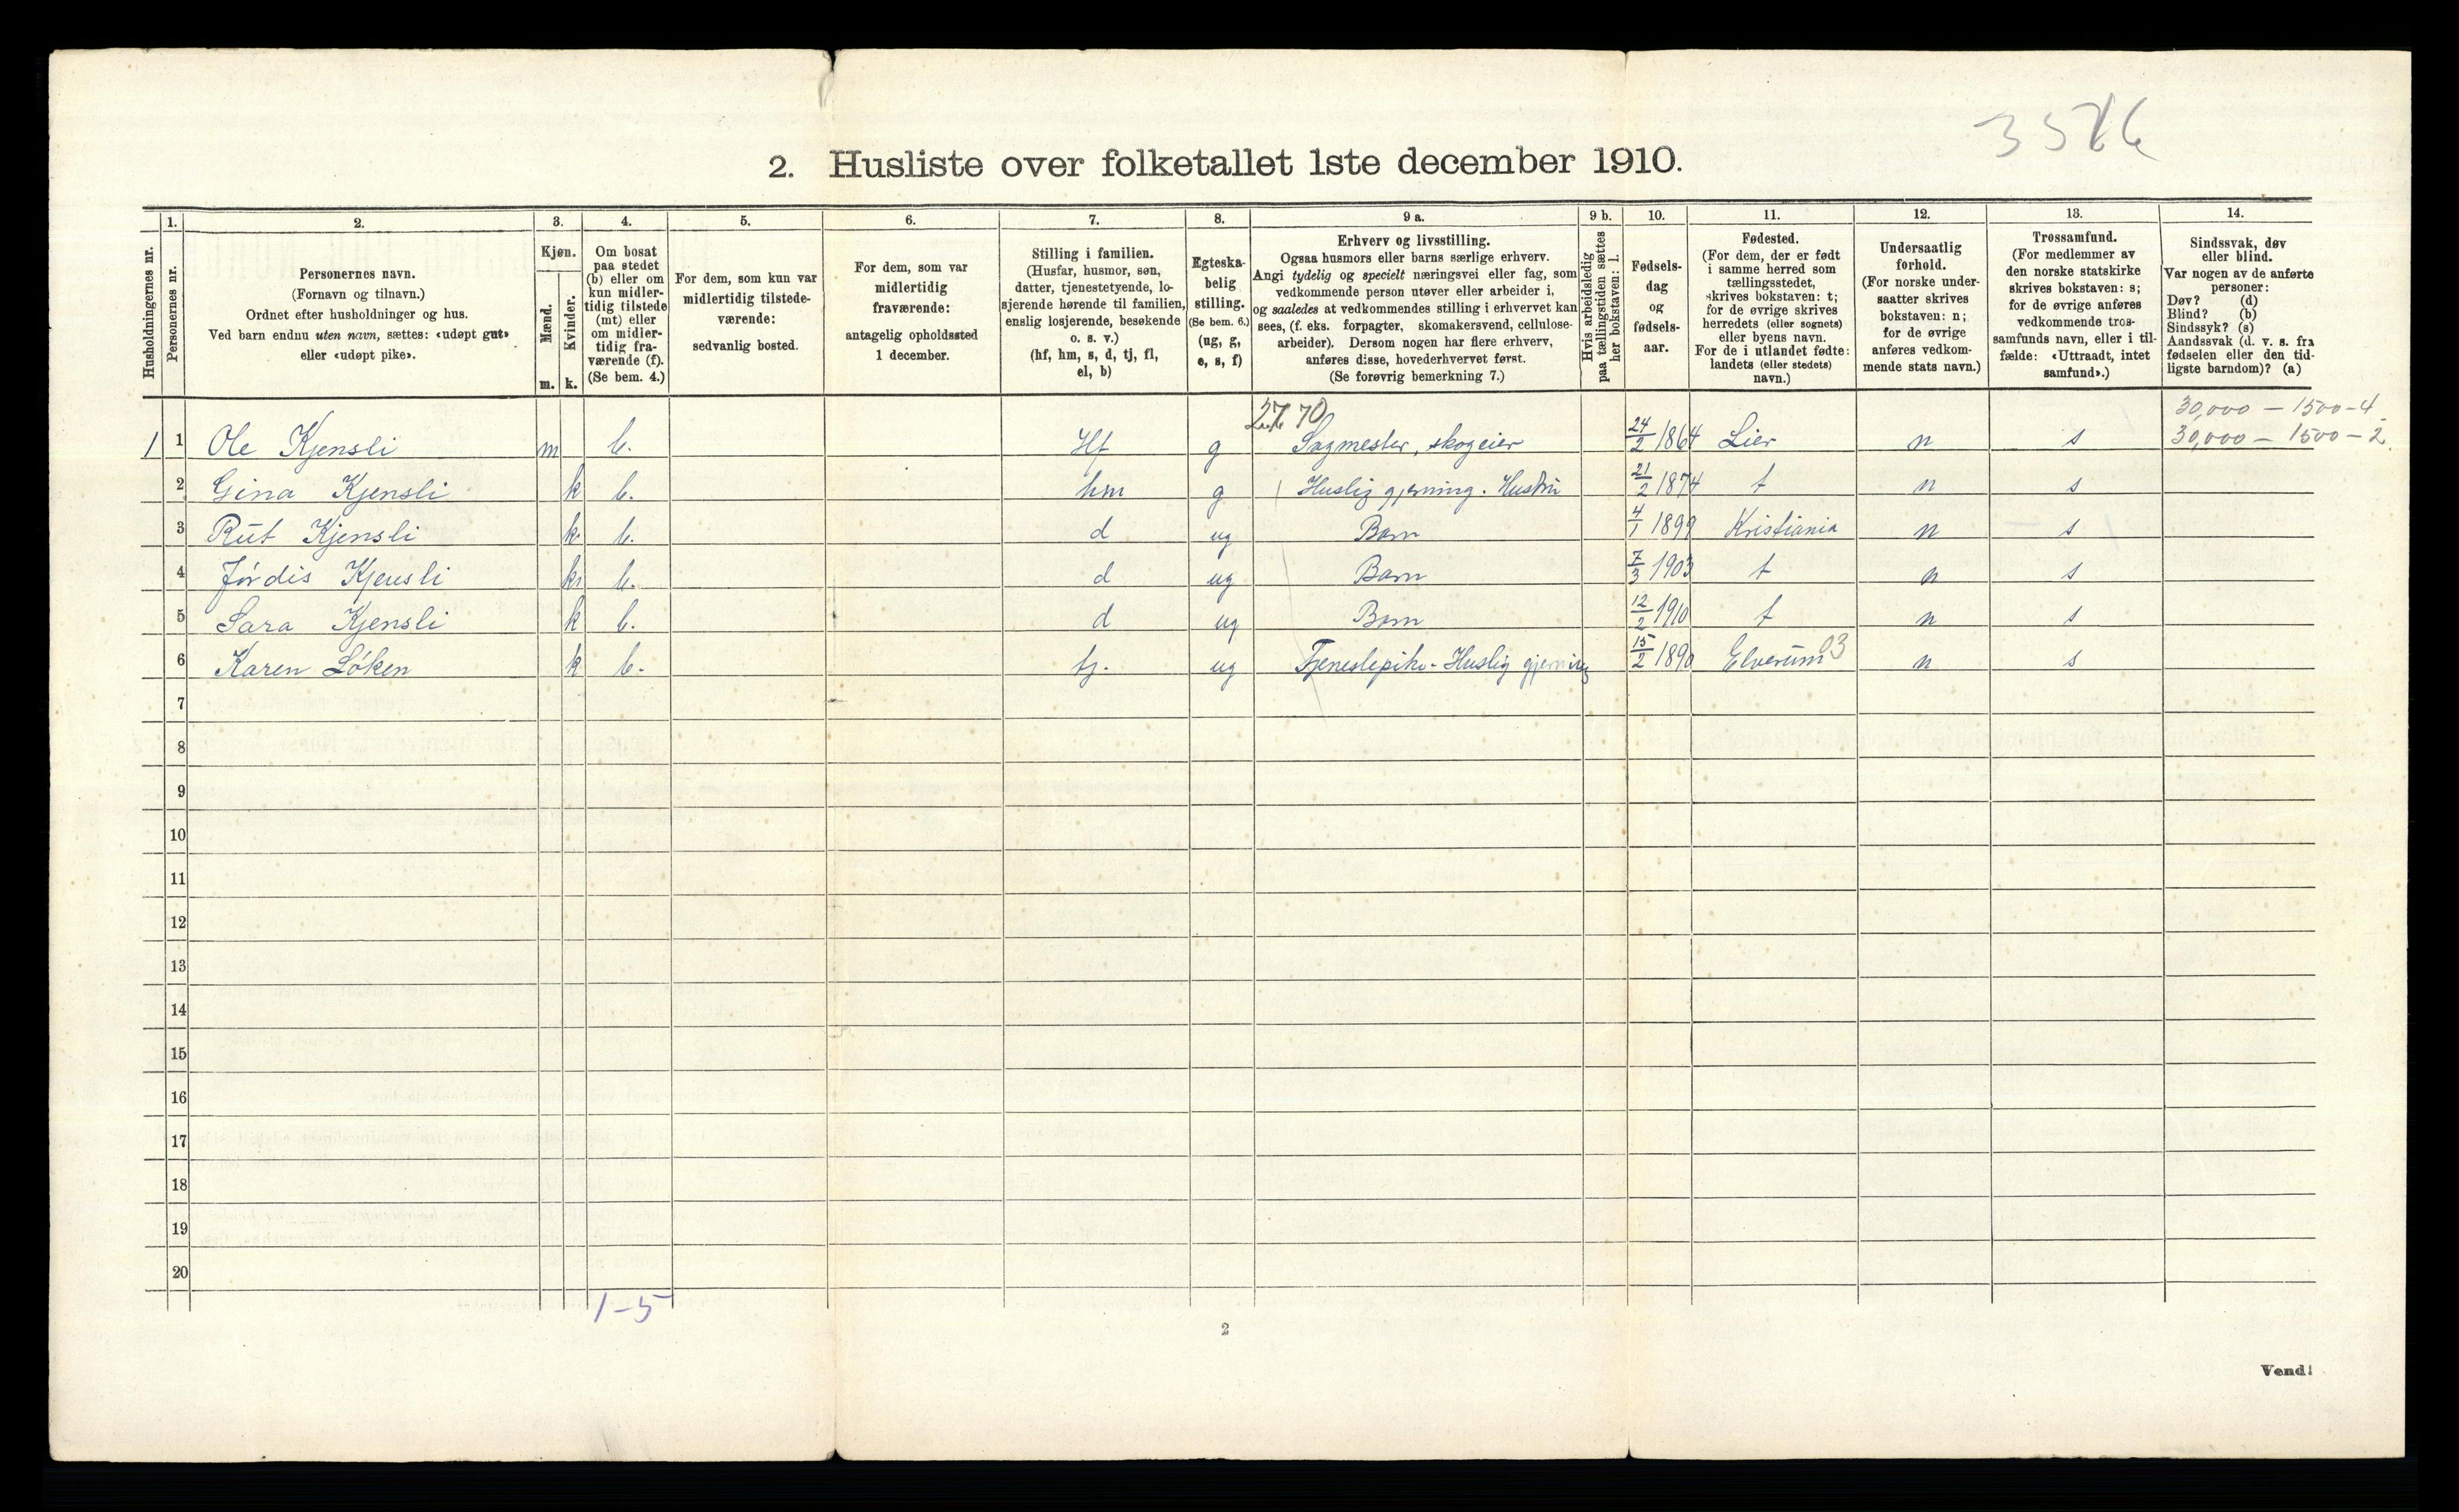 3576
2. Husliste over folketallet 1ste december 1910.
Husholdningernes nr.
1. Personernes nr.
2. Personernes navn.
(Fornavn og tilnavn.)
Ordnet efter husholdninger og hus.
Ved barn endnu uten navn, sættes: «udøpt gut»
eller «udøpt pike».
3. Kjøn.
Mænd. m.
Kvinder. k.
4. Om bosat
paa stedet
(b) eller om
kun midler-
tidig tilstede
(mt) eller
om midler-
tidig fra-
værende (f).
(Se bem. 4.)
5. For dem, som kun var
midlertidig tilstede-
værende:
sedvanlig bosted.
6. For dem, som var
midlertidig
fraværende:
antagelig opholdssted
1 december.
7. Stilling i familien.
(Husfar, husmor, søn,
datter, tjenestetyende, lo-
sjerende hørende til familien,
enslig losjerende, besøkende
o. s. v.)
(hf, hm, s, d, tj, fl,
el, b)
8. Egteska-
belig
stilling.
(Se bem. 6.)
(ug, g,
e, s, f)
9 a. Erhverv og livsstilling.
Ogsaa husmors eller barns særlige erhverv.
Angi tydelig og specielt næringsvei eller fag, som
vedkommende person utøver eller arbeider i,
og saaledes at vedkommendes stilling i erhvervet kan
sees, (f. eks. forpagter, skomakersvend, cellulose-
arbeider). Dersom nogen har flere erhverv,
anføres disse, hovederhvervet først.
(Se forøvrig bemerkning 7.)
9 b. Hvis arbeidsledig
paa tællingstiden sættes
her bokstaven: l.
10. Fødsels-
dag
og
fødsels-
aar.
11. Fødested.
(For dem, der er født
i samme herred som
tællingsstedet,
skrives bokstaven: t;
for de øvrige skrives
herredets (eller sognets)
eller byens navn.
For de i utlandet fødte:
landets (eller stedets)
navn.)
12. Undersaatlig
forhold.
(For norske under-
saatter skrives
bokstaven: n;
for de øvrige
anføres vedkom-
mende stats navn.)
13. Trossamfund.
(For medlemmer av
den norske statskirke
skrives bokstaven: s;
for de øvrige anføres
vedkommende tros-
samfunds navn, eller i til-
fælde: «Uttraadt, intet
samfund».)
14. Sindssvak, døv
eller blind.
Var nogen av de anførte
personer:
Døv? (d)
Blind? (b)
Sindssyk? (s)
Aandssvak (d. v. s. fra
fødselen eller den tid-
ligste barndom)? (a)
70 30,000 - 1500-4
1 1 Ole Kjensli m b. Hf g Sagmester, skogeier 24/2 1864 Lier n s 30,000 - 1500-2
2 Gina Kjensli k b. hm g Huslig gjerning. Hustru 21/2 1874 t n s
3 Rut Kjensli k b. d ug Barn 4/1 1899 Kristiania n s
4 Jórdis Kjensli k b. d ug Barn 7/3 1903 t n s
5 Sara Kjensli k b. d ug Barn 12/2 1910 t n s
6 Karen Lóken k b. tj. ug Tjenestepike - Huslig gjerning 15/2 1890 Elverum 03 n s
7
8
9
10
11
12
13
14
15
16
17
18
19
20
1-5
2
Vend!